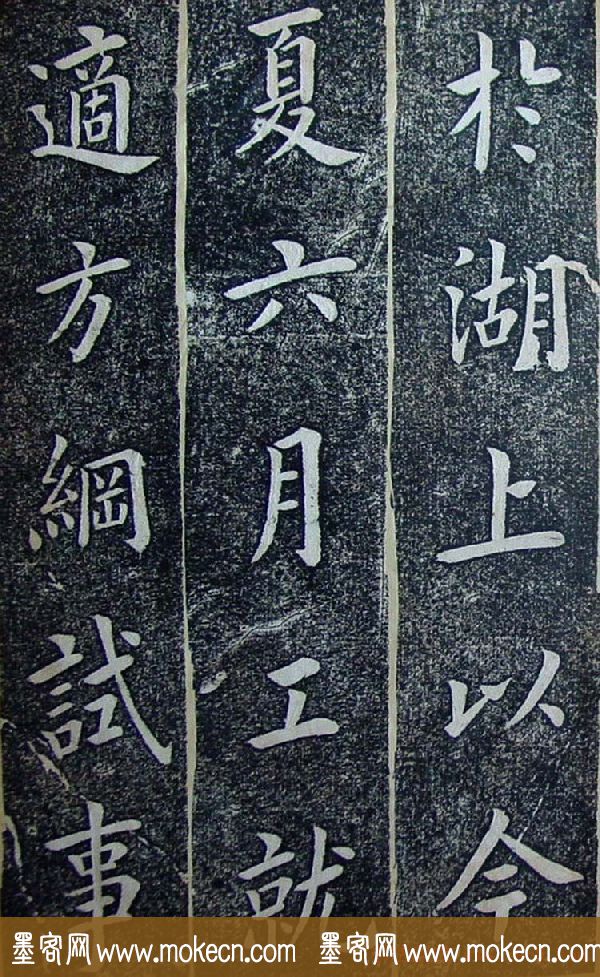 於湖上以今
夏六月工就
適方綱試事
墨客网 www.mokecn.com 墨客网 www.mokecn.com